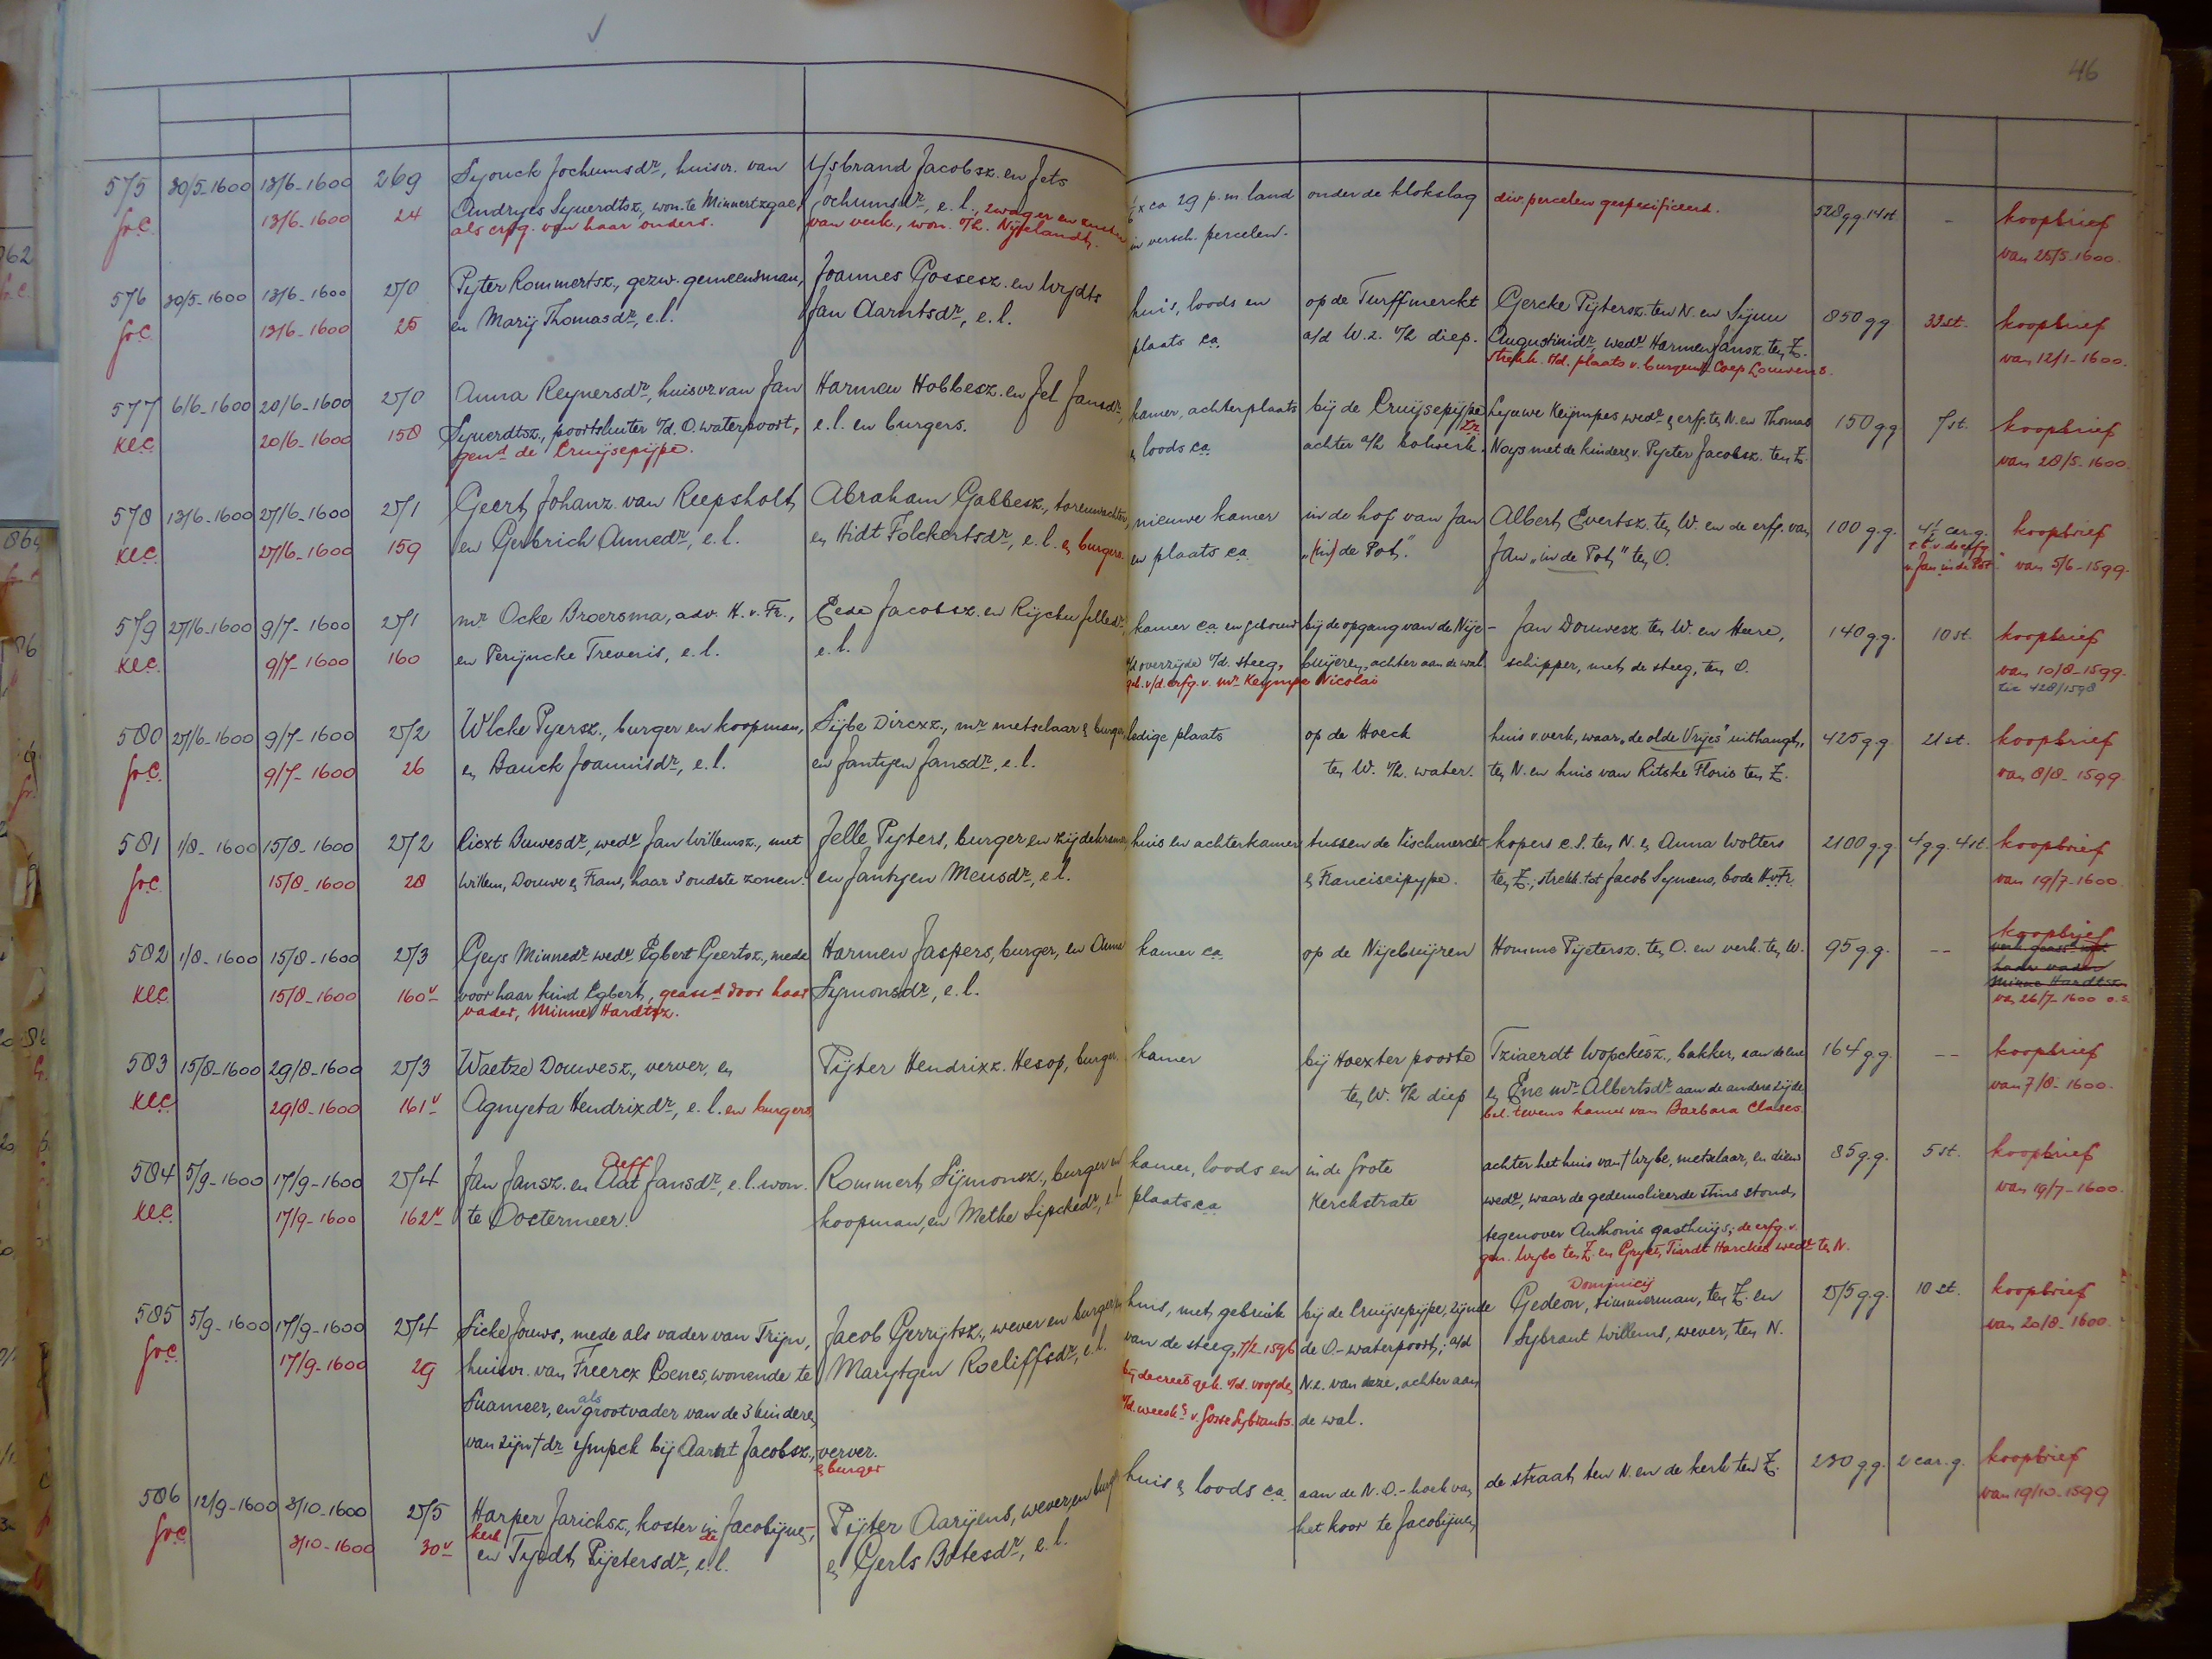 46
575 30/5-1600 13/6-1600 269 Syouck Jochumsdr, huisvr. van Ysbrand Jacobsz. en Jets ca 29 p.m. land onder de klokslag div. percelen gespecificeerd. 528 gg. 14 st. - koopbrief
Gr.C. 13/6-1600 24 Andryes Syuerdtsz, won. te Minnertzgae, Jochumsdr, e.l., zwager en zuster in versch. percelen. van 25/5-1600.
als erfg. van haar ouders. van verk., won. o/h. Nijelandt.
576 30/5-1600 13/6-1600 270 Pyter Rommertsz., gezw. gemeensman, Joannes Gossesz. en Wydts huis, loods en op de Turffmerckt Gercke Pijtersz. ten N. en Sijuu 850 gg 33 st. koopbrief
Gr.C. 13/6-1600 25 en Marij Thomasdr, e.l. Jan Aarntsdr, e.l. plaats ca. a/d W.z. v/h diep. Augustinidr, wedr Harmen Jansz. ten Z. van 12/1-1600.
strekk. t/d. plaats v. burgemr. Coep Louwens.
577 6/6-1600 20/6-1600 270 Anna Reynersdr, huisvr. van Jan Harmen Hobbesz. en Jel Jansdr, kamer, achterplaats bij de Cruijsepijpe Lyuwe Keijmpes wedr & erfg. ten N. en Thomas 150 gg 7 st. koopbrief
KLC. 20/6-1600 158 Syuerdtsz., poortsluiter v/d. O. waterpoort, e.l. en burgers. & loods ca achter a/h bolwerk. Noys met de kinderen v. Pyeter Jacobsz. ten Z. van 28/5-1600.
gend de Cruijsepijpe.
578 13/6-1600 27/6-1600 271 Geert Johanz. van Reepsholt Abraham Gabbesz., torenwachter, nieuwe kamer in de hof van Jan Albert Evertsz. ten W. en de erfg. van 100 g.g. 4½ car. g. koopbrief
KLC. 27/6-1600 159 en Gerbrich Annedr, e.l. en Hidt Folckertsdr, e.l. & burgers. en plaats ca "(in) de Pot". Jan "in de Pot" ten O. t.b.v. de erfg. v. Jan in de Pot. van 5/6-1599.
579 27/6-1600 9/7-1600 271 mr Ocke Broersma, adv. H.v.Fr., Eede Jacobsz. en Rijcku Jelledr, kamer ca en gebouw bij de opgang van de Nije- Jan Douwesz. ten W. en Heere, 140 g.g. 10 st. koopbrief
KLC. 9/7-1600 160 en Perijncke Treveris, e.l. e.l. a/d overzijde v/d. steeg, buijeren, achter aan de wal. schipper, met de steeg, ten O. van 10/8-1599.
geb. v/d. erfg. v. mr Keympe Nicolai zie 428/1598
580 27/6-1600 9/7-1600 272 Wlcke Pyersz., burger en koopman, Sijbe Dircxz., mr metselaar & burger ledige plaats op de Hoeck huis v. verk., waar "de olde Vrijes" uithangt, 425 g.g. 21 st. koopbrief
Gr.C. 9/7-1600 26 en Bauck Joannisdr, e.l. en Jantyen Jansdr, e.l. ten W. v/h. water. ten N. en huis van Ritske Floris ten Z. van 8/8-1599.
581 1/8-1600 15/8-1600 272 Licxt Duwesdr, wedr Jan Willemsz., met Jelle Pijters, burger en zijdekramer huis en achterkamer tussen de Vischmerckt kopers c.s. ten N. & Anna Wolters 2100 g.g. 4 gg. 4 st. koopbrief
Gr.C. 15/8-1600 28 Willem, Douwe & Frans, haar 3 oudste zonen. en Jantyen Meusdr, e.l. & Franciscipijpe. ten Z., strekk. tot Jacob Symens, bode H.v.Fr. van 19/7-1600.
582 1/8-1600 15/8-1600 273 Geys Minnedr wedr Egbert Geertsz., mede Harmen Jaspers, burger, en Anna kamer ca op de Nijebuijren Homme Pijetersz. ten O. en verk. ten W. 95 g.g. -- koopbrief
KLC 15/8-1600 160v voor haar kind Egbert, geassd door haar Symonsdr, e.l. haar vader Minne Hardtsz.
vader, Minne Hardtsz. van 26/7-1600 o.s.
583 15/8-1600 29/8-1600 273 Waetze Douwesz., verver, en Pijter Hendrixz. Hesop, burger. kamer bij Hoexter poorte Tziaerdt Wopckesz., bakker, aan de ene 164 g.g. -- koopbrief
KLC 29/8-1600 161v Agnyeta Hendrixdr, e.l. en burgers ten W. v/h diep & Ene mr Albertsdr aan de andere zijde van 7/8-1600.
bel. tevens kamer van Barbara Clases.
584 5/9-1600 17/9-1600 274 Jan Jansz. en Aat Aeff Jansdr, e.l. won. Rommert Sijmonsz., burger en kamer, loods en in de Grote achter het huis van † Wybe, metselaar, en diens 85 g.g. 5 st. koopbrief
KLC. 17/9-1600 162v te Oostermeer. koopman, en Metke Sipckedr, e.l. plaats ca Kerckstrate wedr, waar de gedemolieerde stins stond, van 19/7-1600.
tegenover Anthonis gasthuijs; de erfg. v.
gen. Wybe ten Z. en Gryet, Tiardt Harckes wedr ten N.
585 5/9-1600 17/9-1600 274 Sicke Jouws, mede als vader van Trijn, Jacob Gerrijtsz., wever en burger, en huis, met gebruik bij de Cruijsepijpe, zijnde Gedeon Dominicij, timmerman, ten Z. en 275 g.g. 10 st. koopbrief
Gr.C. 17/9-1600 29 huisvr. van Freercx Coenes, wonende te Marytgen Roeliffsdr, e.l. van de steeg, 7/2 1596 de O.-waterpoort, a/d Sybrant Willems, wever, ten N. van 20/8-1600.
Suameer, en als grootvader van de 3 kinderen bij decreet gek. v/d. voogden N.z. van deze, achter aan
van zijn † dr Ympck bij Aarnt Jacobsz., verver. v/d. weesk. v. Gosse Sybrants. de wal.
& burger
586 12/9-1600 3/10-1600 275 Harper Jarichsz., koster in de Jacobijner- Pijter Aarijens, wever, en burg huis & loods ca. aan de N.O.-hoek van de straat ten N. en de kerk ten Z. 230 g.g. 2 car. g. koopbrief
Gr.C. 3/10-1600 30v kerk en Tyedt Pijetersdr, e.l. & Gerls Botesdr, e.l. het koor te Jacobijnen van 19/10-1599